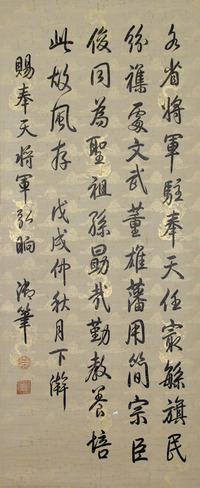 各省將軍駐奉天任㝡緐旗民
紛襍處文武董雄藩用簡宗臣
俊同為聖祖孫勗哉勤教養培
此故風存 戊戌仲秋月下澣
賜奉天將軍弘晌 御筆